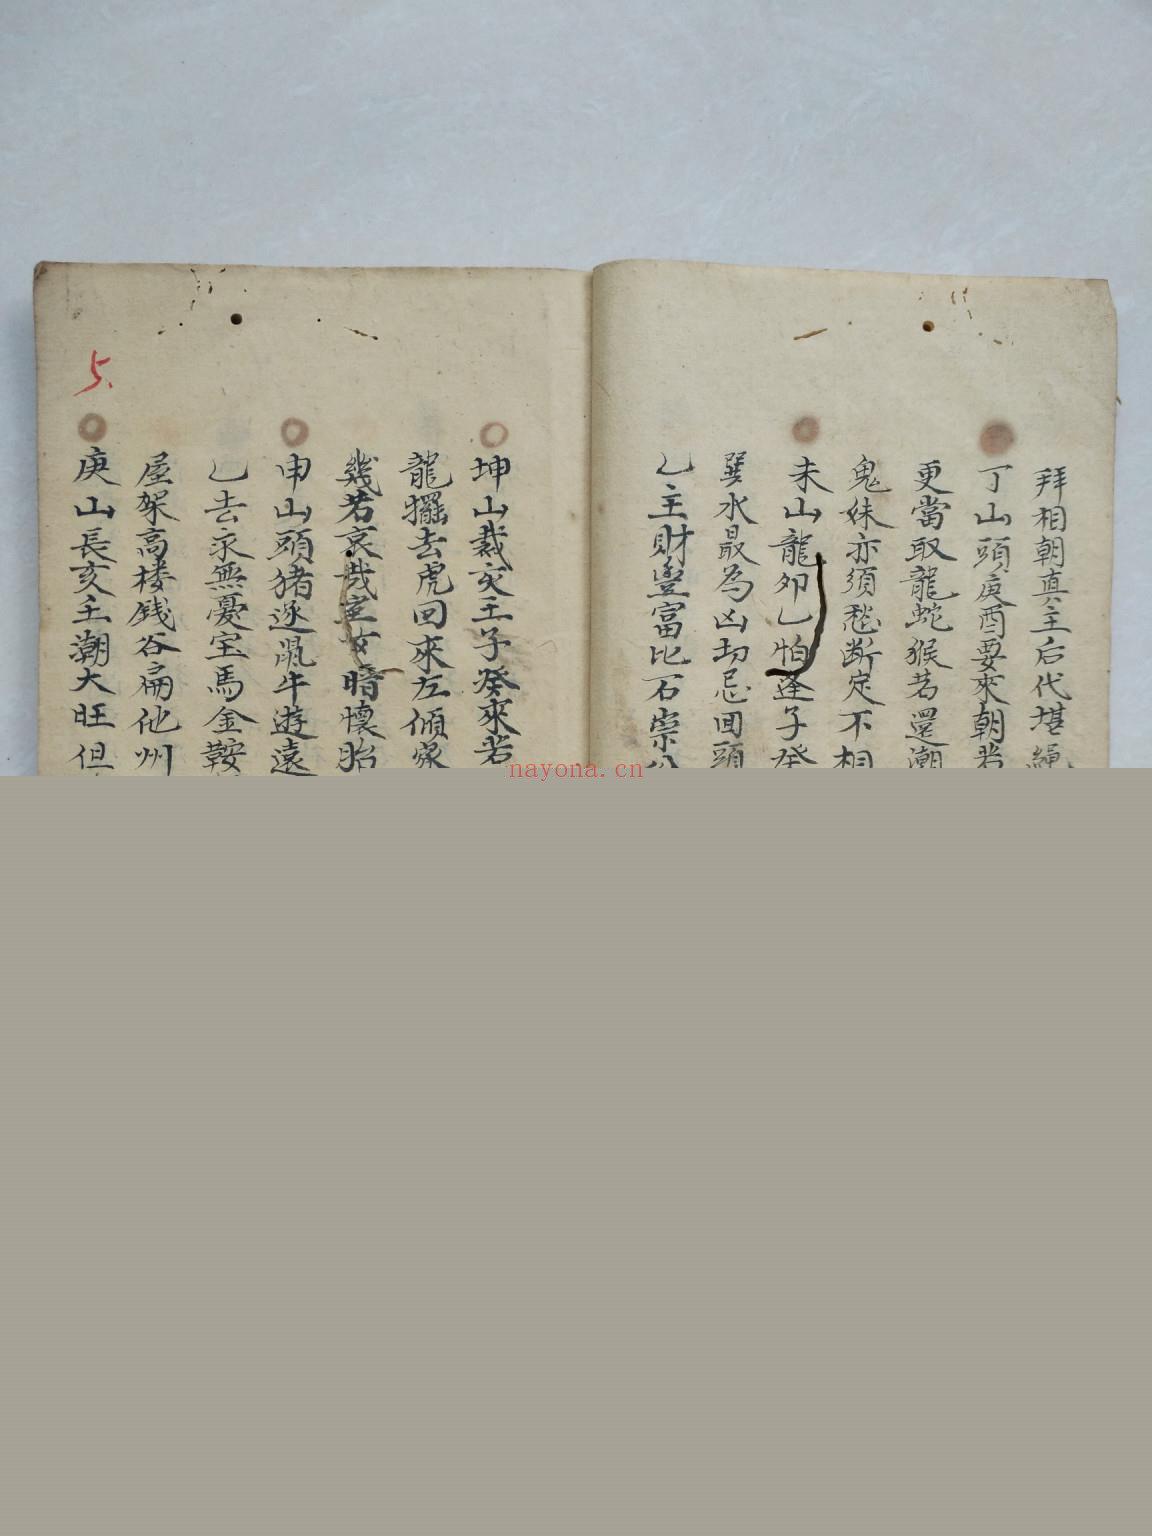 拜相朝真主后代堪繩
丁山頭庚酉要來朝若
更當取龍蛇猴若還潮
鬼妹亦須愁断定不相
未山龍夘乙怕逢子癸
巽水最為凶切忌回頭
乙主財豊富比石崇
坤山裁亥壬子癸來若
龍擺去虎回來左傾家
幾若哀哉室女暗懷胎
申山頭猪逐鼠牛遊遠
乙去永無憂宝馬金鞍
屋架高楼銭谷扁他州
庚山長亥壬潮大旺但
5.
nayona.cn